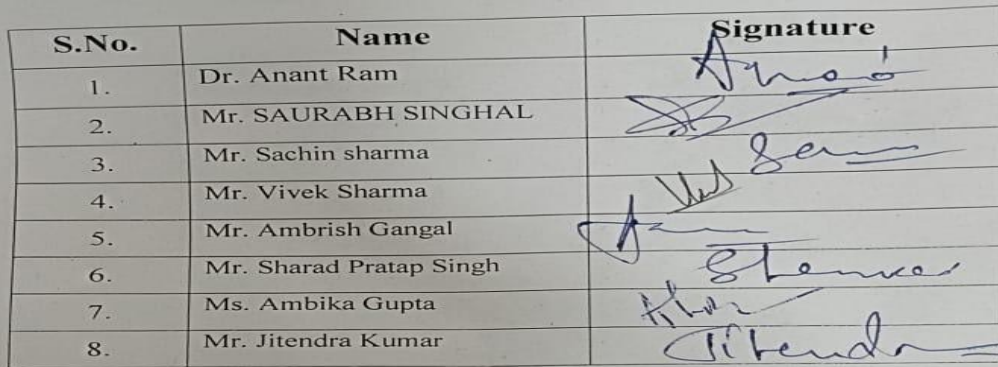 S.No. Name Signature
1. Dr. Anant Ram
2. Mr. SAURABH SINGHAL
3. Mr. Sachin sharma
4. Mr. Vivek Sharma
5. Mr. Ambrish Gangal
6. Mr. Sharad Pratap Singh
7. Ms. Ambika Gupta
8. Mr. Jitendra Kumar Jitendra